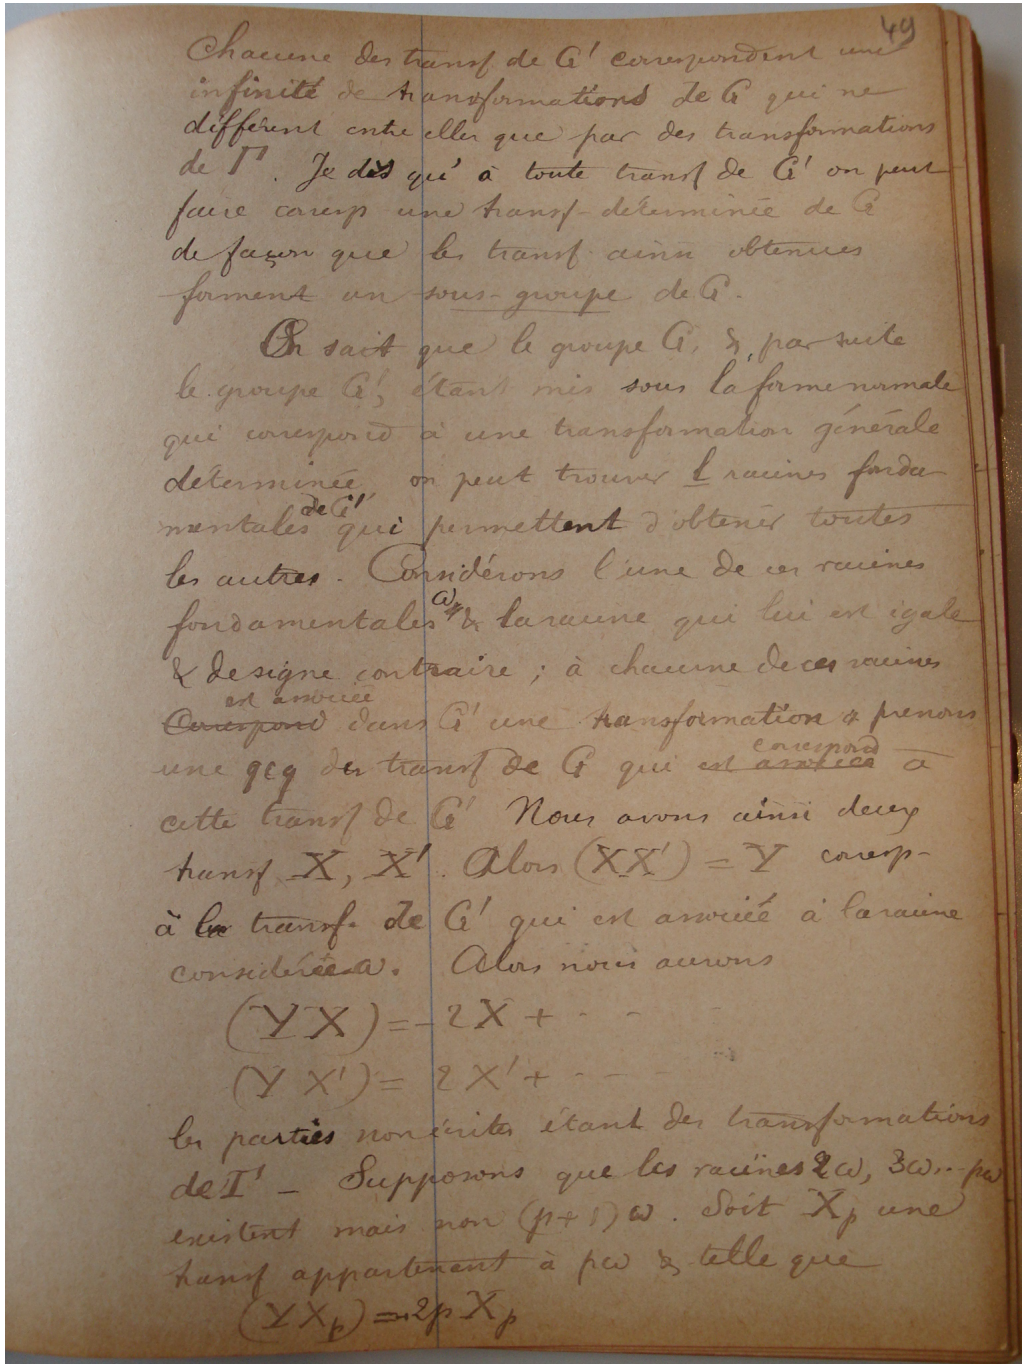 49
Chacune des transf de G' correspondent une
infinité de transformations de G qui ne
différent entre elles que par des transformations
de Γ. Je dis qu'à toute transf de G' on peut
faire corresp une transf- déterminée de G
de façon que les transf ainsi obtenues
forment un sous-groupe de G.
On sait que le groupe G, & par suite
le groupe G', étant mis sous la forme normale
qui correspond à une transformation générale
déterminée, on peut trouver l racines fonda-
mentales de G' qui permettent d'obtenir toutes
les autres. Considérons l'une de ces racines
fondamentales ω, & la racine qui lui est égale
& de signe contraire ; à chacune de ces racines
Correspond est associée dans G' une transformation & prenons
une qcq des transf de G qui est associée correspond à
cette transf de G' Nous avons ainsi deux
transf X, X'. Alors (XX') = Y corresp-
à la transf. de G' qui est associée à la racine
considérée ω. Alors nous aurons
(YX) = -2X + - - -
(YX') = 2X' + - - - -
les parties non écrites étant des transformations
de Γ - Supposons que les racines 2ω, 3ω... pω
existent mais non (p+1)ω. Soit Xp une
transf appartenant à pω & telle que
(YXp) = -2p Xp